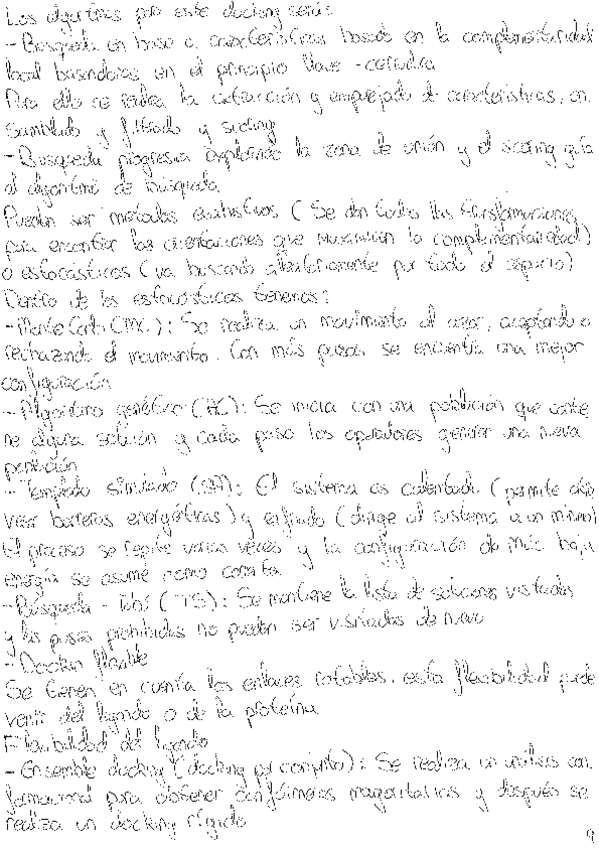 Los algoritmos para este docking serás:
- Búsqueda en base a características basado en la complementariedad
local basandonos en el principio llave - cerradura
Para ello se realiza la extracción y emparejado de características, en
samblado y filtrado y scoring
- Búsqueda progresiva explorando la zona de unión y el scoring guía
al algoritmo de búsqueda
Pueden ser metodos exhaustivos (Se dan todas las transformaciones
para encontrar las orientaciones que maximicen la complementariedad)
o estocásticos (va buscando aleatoriamente por todo el espacio)
Dentro de los estocásticos tenemos:
- Monte Carlo (MC): Se realiza un movimiento al azar, aceptando o
rechazando el movimiento. Con más pasos se encuentra una mejor
configuración
- Algoritmo genético (AG): Se inicia con una población que contie
ne alguna solución y cada paso los operadores generan una nueva
población
- Templado simulado (SA): El sistema es calentado (permite atra
vesar barreras energéticas) y enfriado (dirige al sistema a un mínimo)
El proceso se repite varias veces y la configuración de más baja
energía se asume como correcta
- Búsqueda - Tabú (TS): Se mantiene la lista de soluciones visitadas
y las poses prohibidas no pueden ser visitadas de nuevo
- Docking flexible
Se tienen en cuenta los enlaces rotables, esta flexibilidad puede
venir del ligando o de la proteína
Flexibilidad del ligando
- Ensemble docking (docking por conjunto): Se realiza un análisis con
formacional para obtener confórmeros mayoritarios y después se
realiza un docking rígido
9